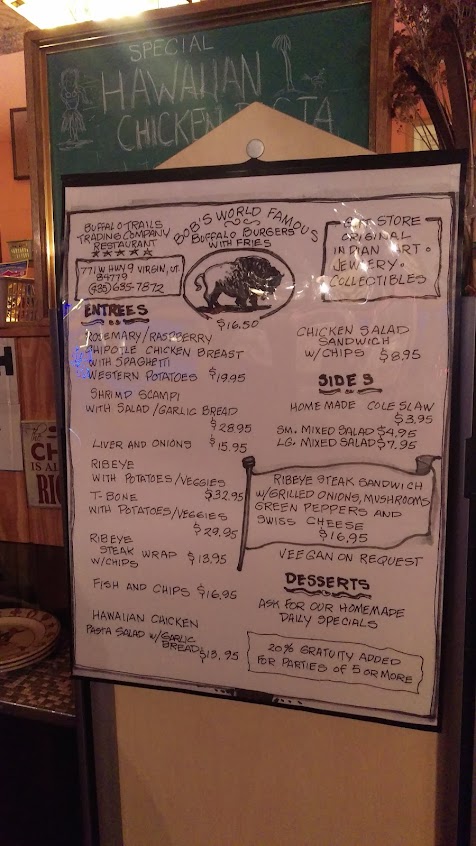 SPECIAL
HAWAIIAN
CHICKEN
BUFFALO TRAILS
TRADING COMPANY
RESTAURANT
771 W HWY 9 VIRGIN, UT.
84779
(435) 635-7872
BOB'S WORLD FAMOUS
BUFFALO BURGERS
WITH FRIES
$16.50
GIFT STORE
ORIGINAL
INDIAN ART •
JEWLERY •
COLLECTIBLES
ENTREES
ROSEMARY/RASPBERRY
CHIPOTLE CHICKEN BREAST
WITH SPAGHETTI
WESTERN POTATOES $19.95
SHRIMP SCAMPI
WITH SALAD/GARLIC BREAD
$28.95
LIVER AND ONIONS $15.95
RIBEYE
WITH POTATOES/VEGGIES
$32.95
T-BONE
WITH POTATOES/VEGGIES
$29.95
RIBEYE
STEAK WRAP $13.95
W/CHIPS
FISH AND CHIPS $16.95
HAWAIIAN CHICKEN
PASTA SALAD W/GARLIC
BREAD $13.95
CHICKEN SALAD
SANDWICH
W/CHIPS $8.95
SIDES
HOMEMADE COLE SLAW
$3.95
SM. MIXED SALAD $4.95
LG. MIXED SALAD $7.95
RIBEYE STEAK SANDWICH
W/GRILLED ONIONS, MUSHROOMS
GREEN PEPPERS AND
SWISS CHEESE
$16.95
VEEGAN ON REQUEST
DESSERTS
ASK FOR OUR HOMEMADE
DAILY SPECIALS
20% GRATUITY ADDED
FOR PARTIES OF 5 OR MORE